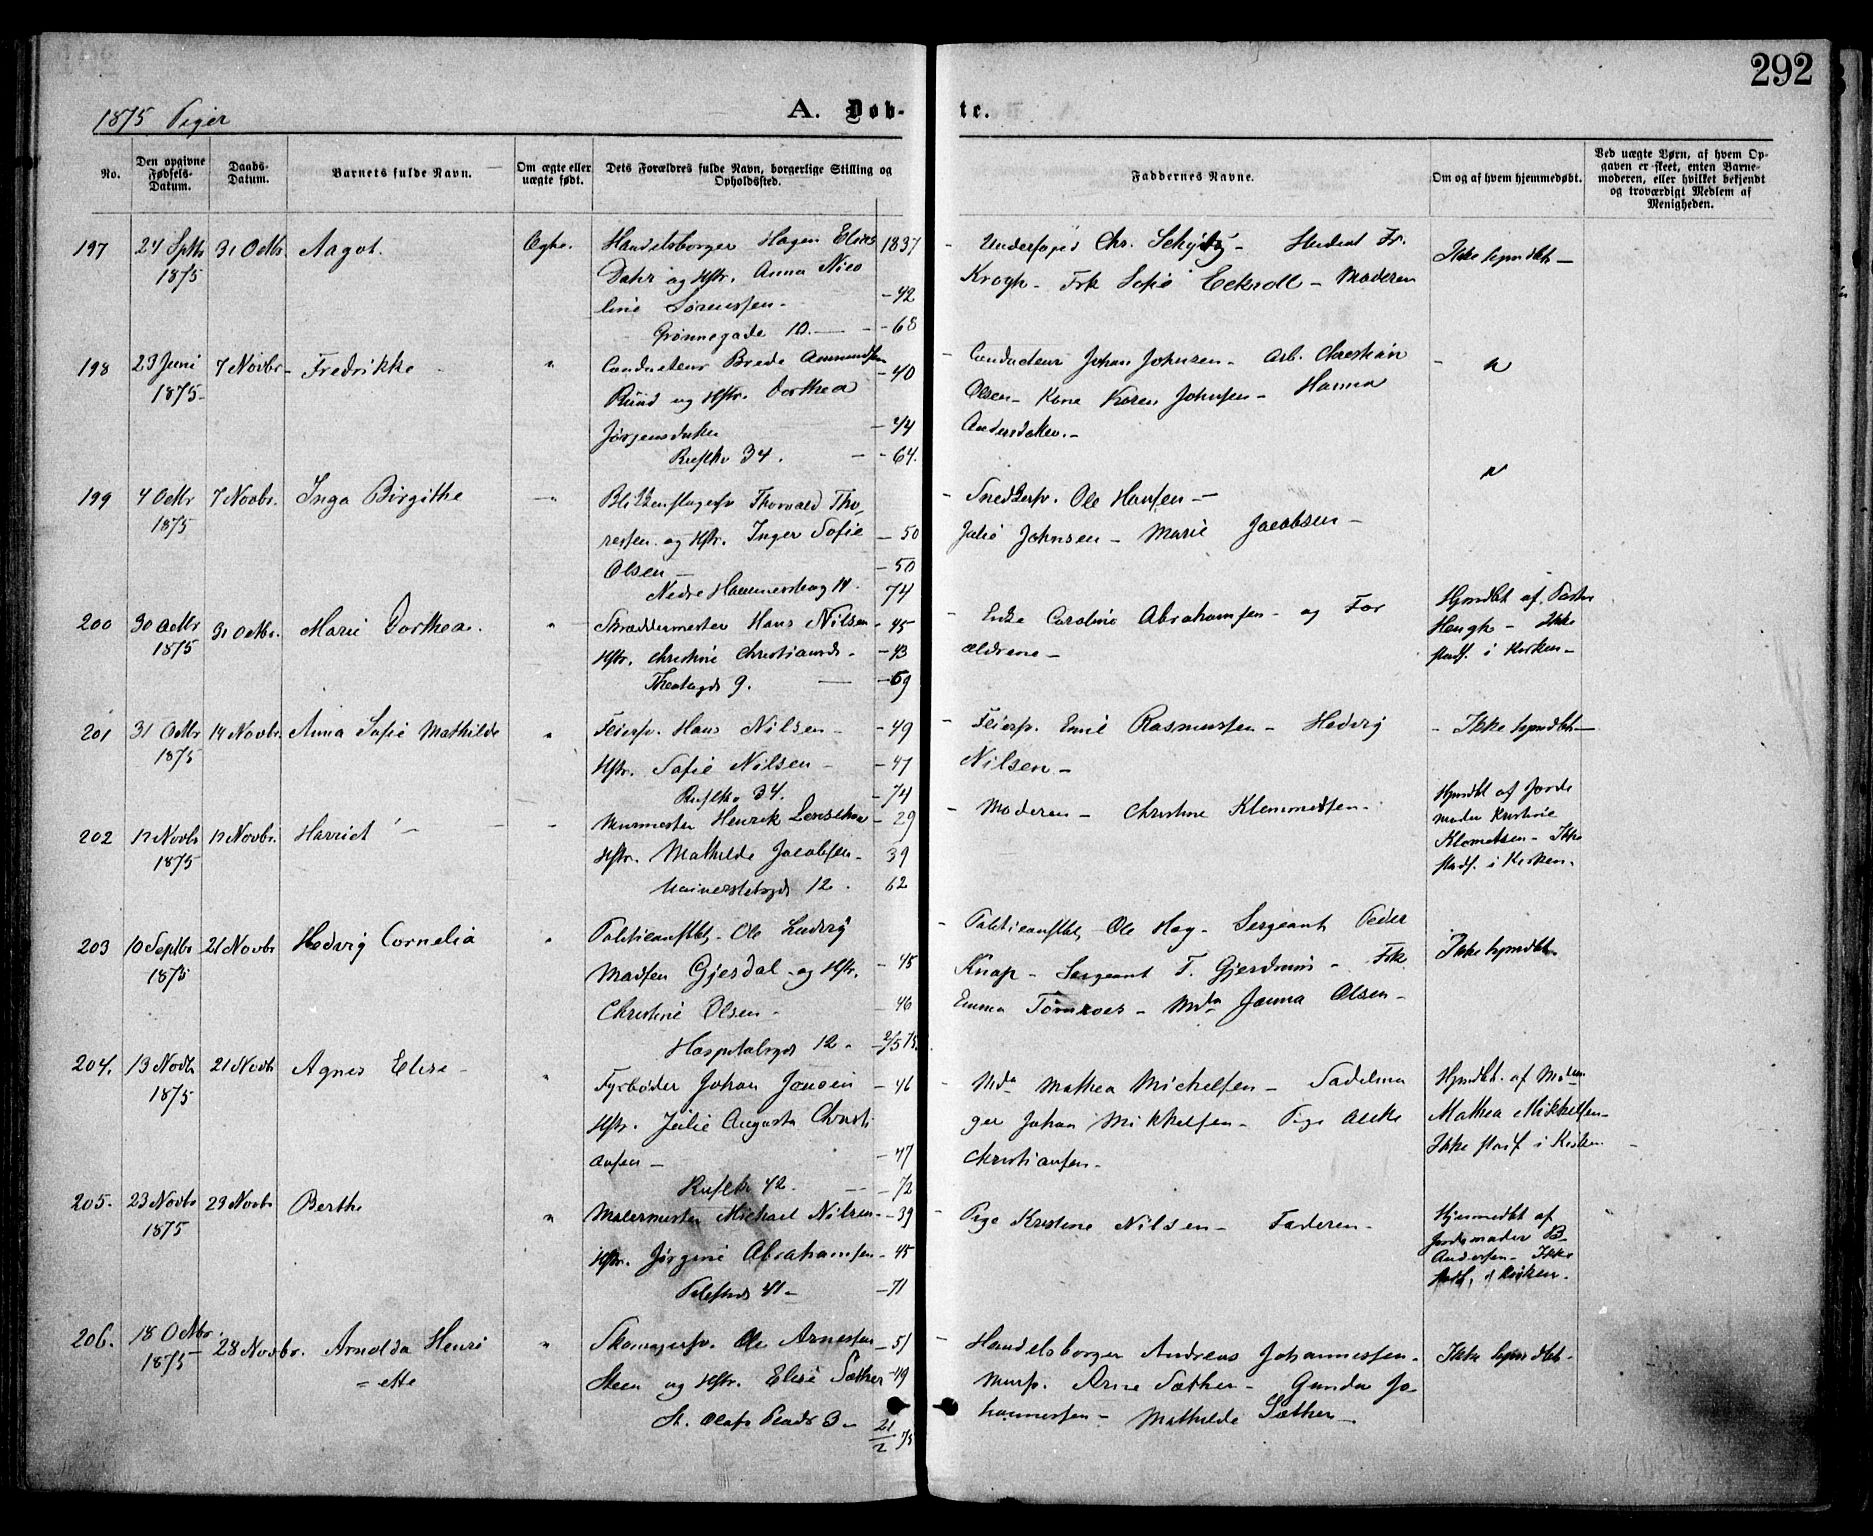 292
1875 Piger
A. Døb-
te.
No.
Den opgivne
Fødsels-
Datum.
Daabs-
Datum.
Barnets fulde Navn.
Om ægte eller
uægte født.
Dets Forældres fulde Navn, borgerlige Stilling og
Opholdssted.
Faddernes Navne.
Om og af hvem hjemmedøbt.
Ved uægte Børn, af hvem Op-
gaven er skeet, enten Barne-
moderen, eller hvilket bekjendt
og troværdigt Medlem af
Menigheden.
197 24 Septb 31 Octbr Aagot. Ægte. Handelsborger Hagen Elias 1837
1875 Dahr og Hstr. Anna Nico
line Sørenssen - 42
Grønnegade 10. - 68
- Chr. - Student Fr.
Krogh - Frk Sofie - Moderen
Ikke hjmdbt -
198 23 Juni 7 Novbr - Fredrikke " Conducteur Brede Amundsen - 40
1875 - Ruud og Hstr. Dorthea
Jørgensdatter - 44
34. - 64.
- Conducteur Johan Johnsen - Arb. Christian
Olsen - Kone Karen Johnsen - Hanna
Andersdatter. -
"
199 4 Octbr 7 Novbr. Inga Birgithe " Blikkenslagersv Thorvald Tho-
1875 ressen og Hstr. Inger Sofie - 50
Olsen - - 50
Nedre Hammersborg 14. 74
- Snedkersv. Ole Hansen -
Julie Johnsen - Marie Jacobsen -
"
200 30 Octbr 31 Octbr. Marie Dorthea. " Skræddermester Hans Nilsen - 45
1875 Hstr. Christine Christiansd. - 43
Theatergd 9. - 69
- Enke Caroline Abrahamsen - og For
ældrene -
Hjmdbt af. Pastor
Hough - Ikke
stadf. i Kirken -
201 31 Octbr 14 Novbr. Anna Sofie Mathilde " Feiersv. Hans Nilsen - - 49
1875 Hstr. Sofie Nilsen - - 47
34. - 74
- Feiersv. Emil Rasmussen - Hedvig
Nilsen -
- Ikke hjmdbt -
202 12 Novbr 12 Novbr. Harriet - " Murmester Henrik - 29
1875 Hstr. Mathilde Jacobsen - 39
Universitetsgd 12. 62
- Moderen - Christine Klemmetsen -
Hjmdbt af Jorde
moder Kristine
Klemetsen - Ikke
stadf. i Kirken.
203 10 Septbr 21 Novbr Hedvig Cornelia " Politieanstbt - Ole Ludvig
1875 Madsen Gjesdal - og Hstr. - 45
Christine Olsen - - 46
Hospitalsgd 12 - 2/5 75.
- Politieanstbt, Ole Hag - Sergeant Peder
Knap - Sergeant T. - Frk.
Emma - Mda Janna Olsen -
Ikke hjmdbt
204. 13 Novbr 21 Novbr Agnes Elise - " Fyrbøder Johan Jansen - 46
1875 Hstr. Julie Augusta Christi
ansen - - 47
42. - 72
- Mda Mathea Michelsen - Sadelma
ger Johan Mikkelsen - Pige
Christiansen -
Hjmdbt. af Madam
Mathea Mikkelsen -
Ikke stadf i Kirken -
205. 23 Novbr 29 Novbr Berthe " Malermester Michael Nilsen - 39
1875 Hstr. Jørgine Abrahamsen - 45
41 - - 71
- Pige Kristine Nilsen - Faderen -
Hjemmedbt af
Jordemoder B.
Andersen - Ikke
stadf, i Kirken.
206. 18 Octbr. 28 Novbr. Arnolda Henri " Skomagersv. Ole Arnessen - 51
1875 = ette Steen og Hstr. Elise Sæther - 49
St. Olafs Plads 3 - 21/2 75
- Handelsborger Andreas Johannessen -
Mursv. Arne Sæther - Gunda Jo-
hannessen - Mathilde Sæther -
Ikke hjmdbt -